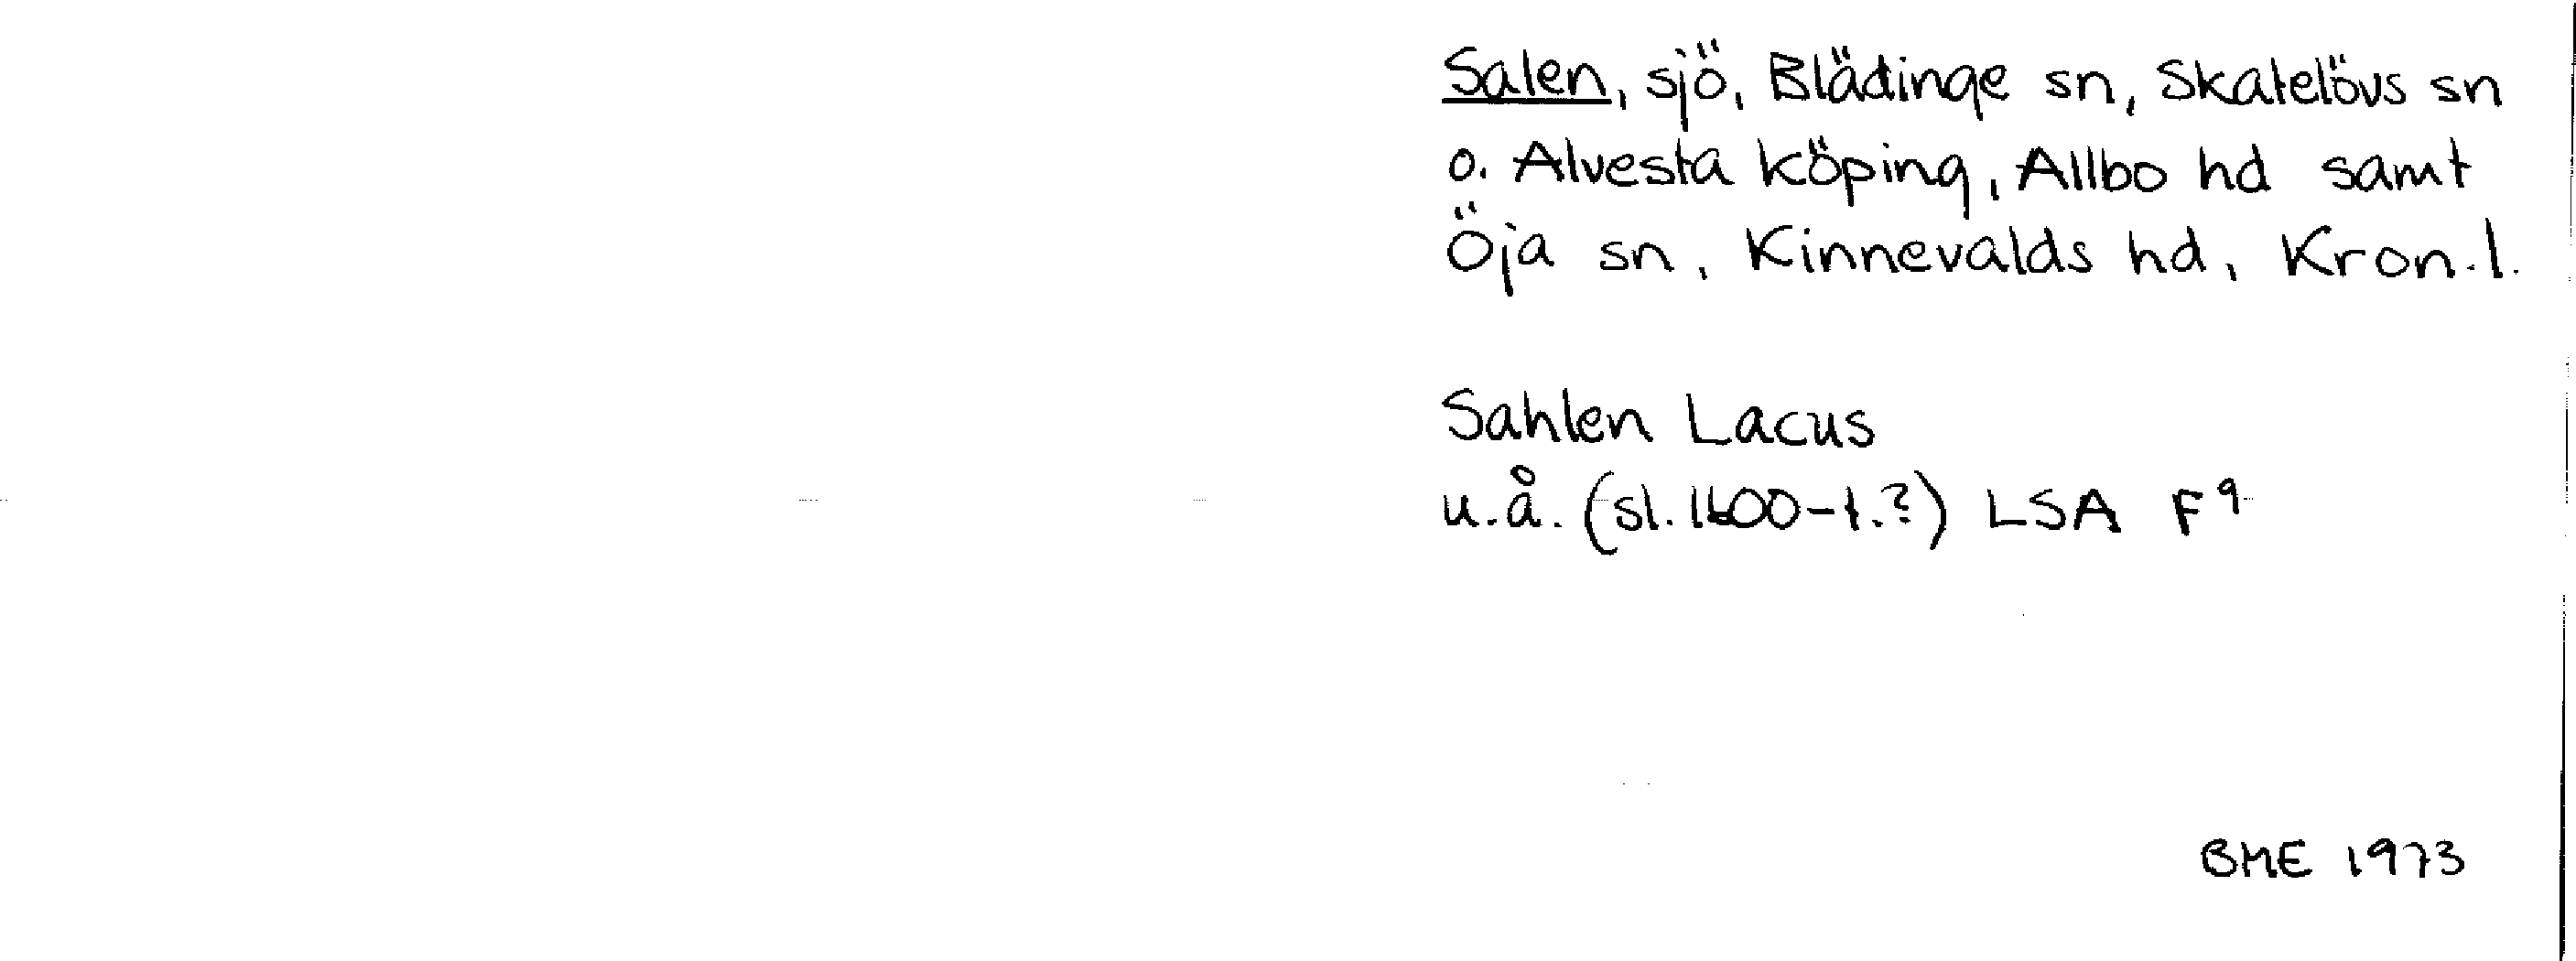 Salen, sjö, Blädinge sn, Skatelövs sn
o. Alvesta köping, Allbo hd samt
Öja sn, Kinnevalds hd, Kron.l.
Sahlen Lacus
u.å. (sl. 1600-t.?) LSA F9
BME 1973